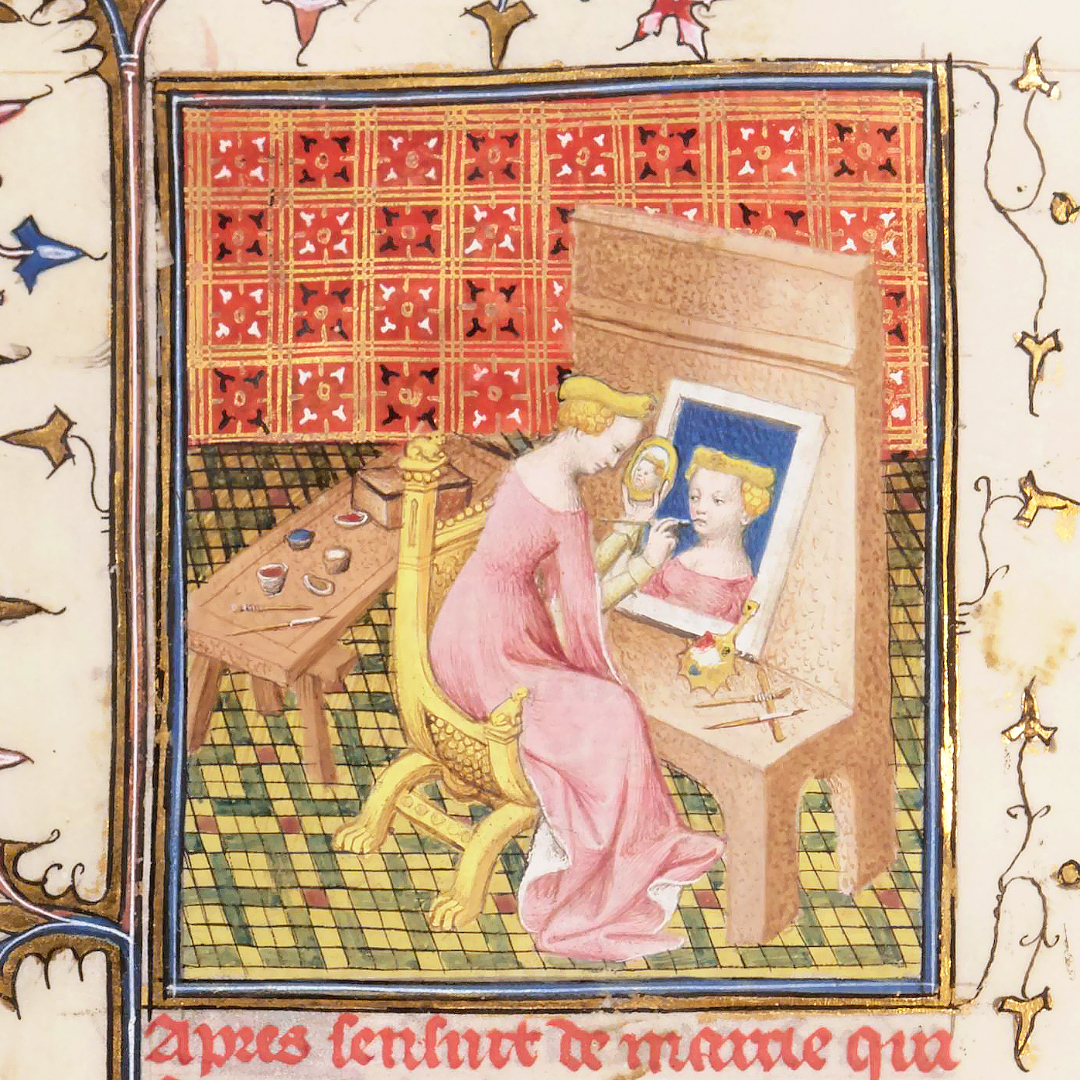 Apres sensuit de marcie qui